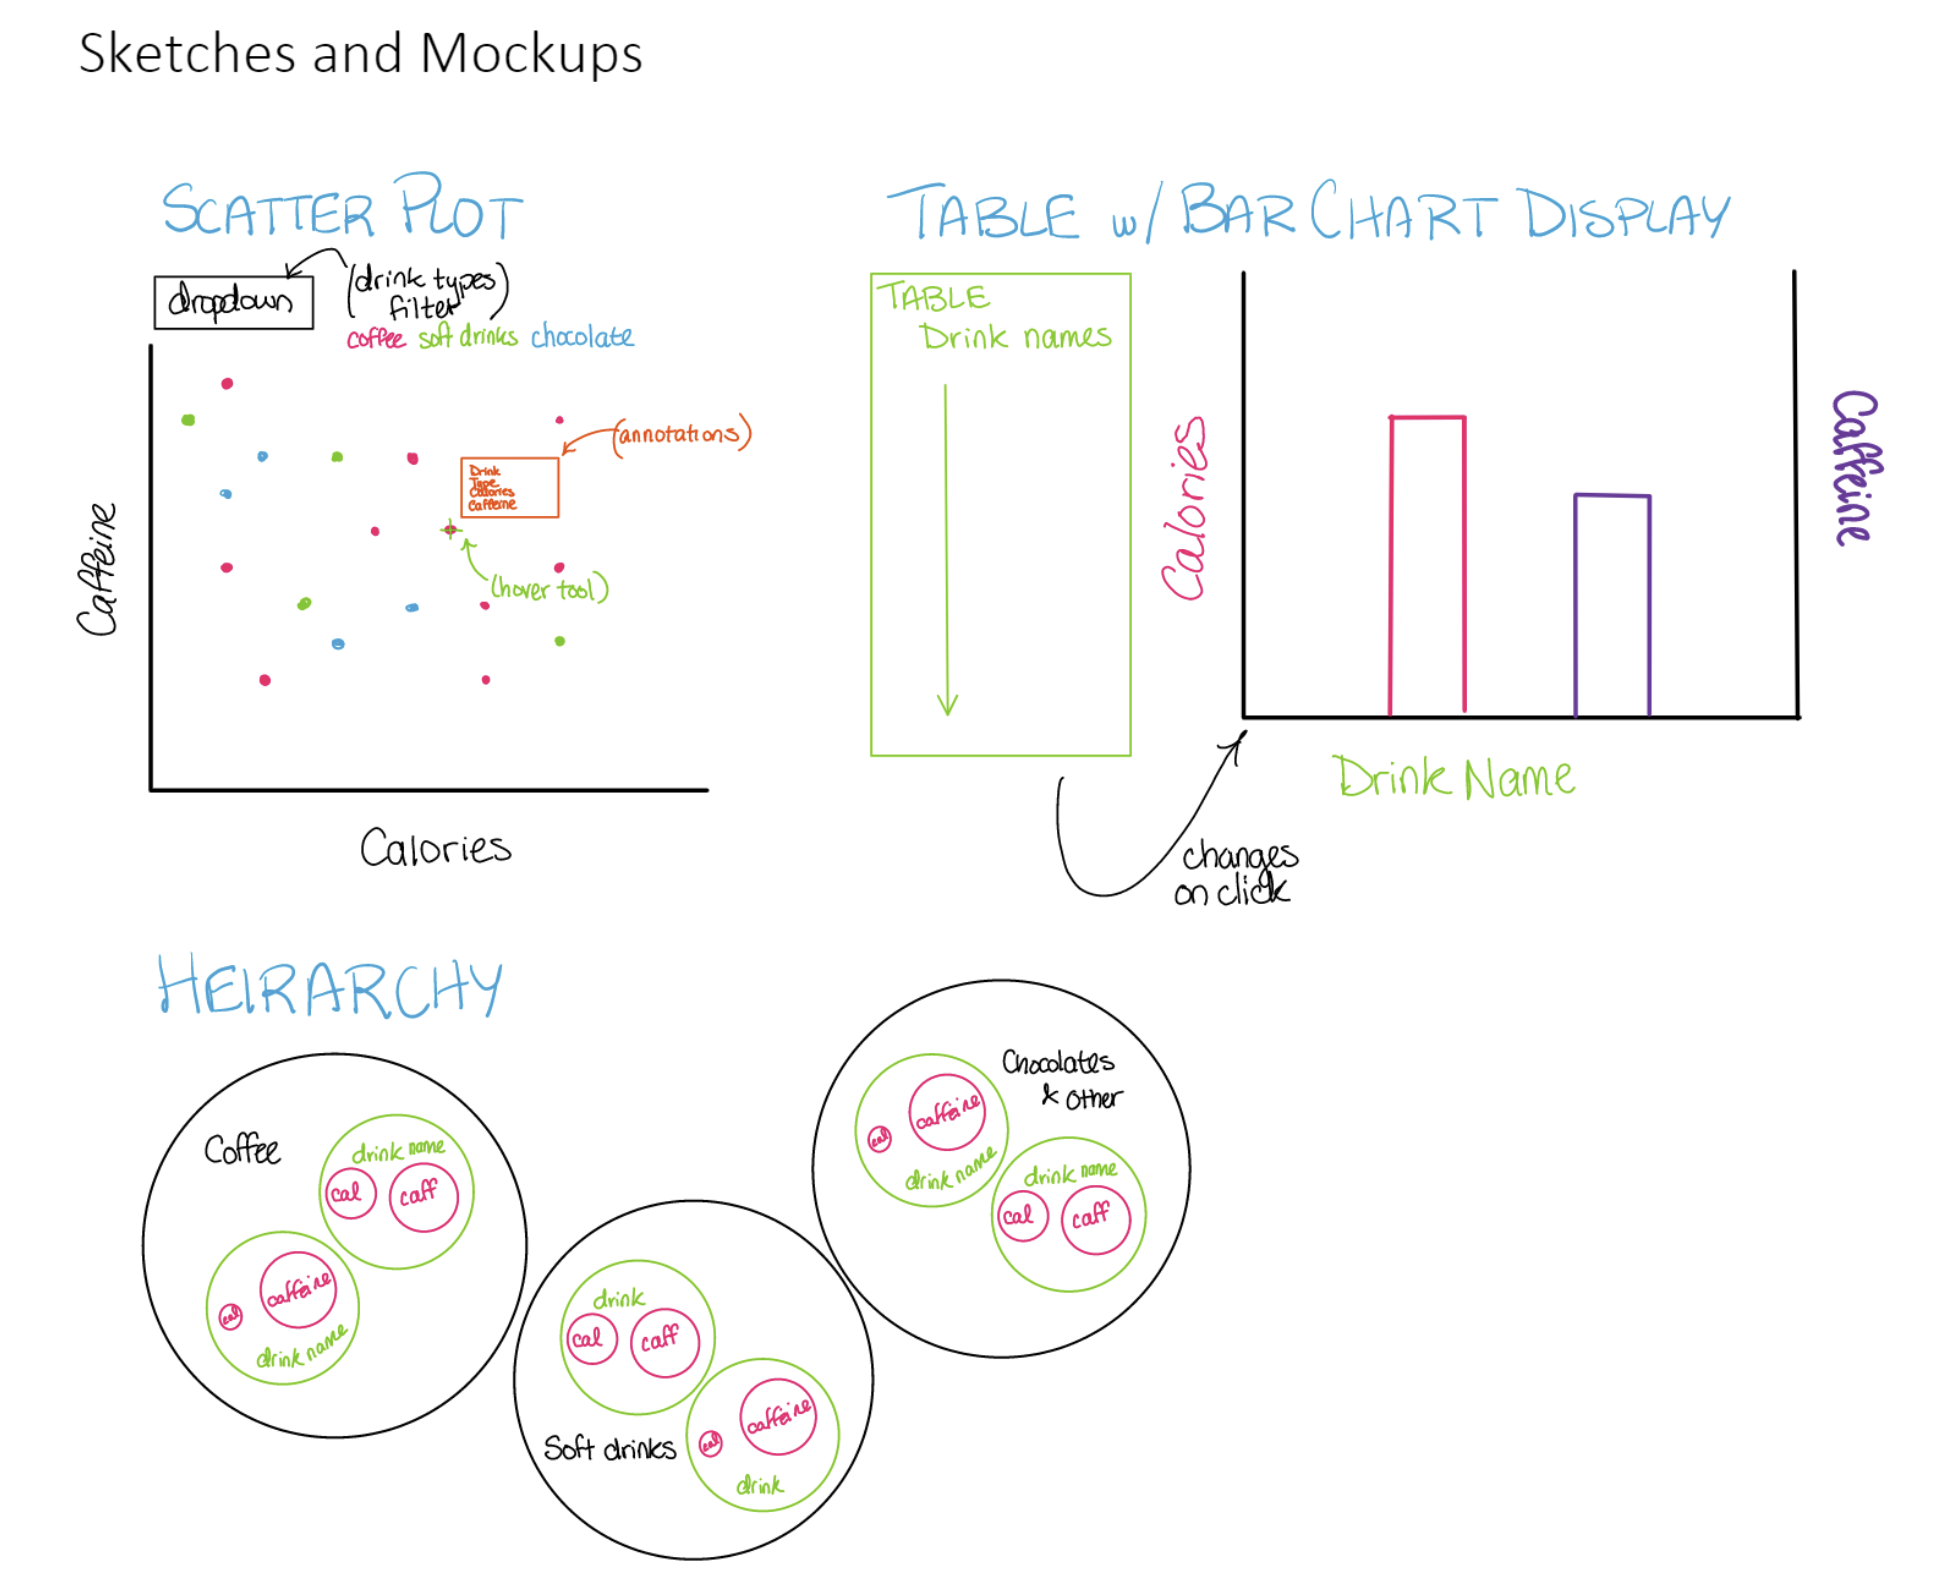 Sketches and Mockups
SCATTER PLOT
dropdown
(drink types
filter)
coffee soft drinks chocolate
(annotations)
Drink
Type
Calories
Caffeine
(hover tool)
Caffeine
Calories
TABLE w/ BAR CHART DISPLAY
TABLE
Drink names
Calories
Caffeine
Drink Name
changes
on click
HEIRARCHY
Coffee
drink name
cal
caff
cal
caffeine
drink name
Soft drinks
drink
cal
caff
cal
caffeine
drink
Chocolates
& Other
cal
caffeine
drink name
drink name
cal
caff